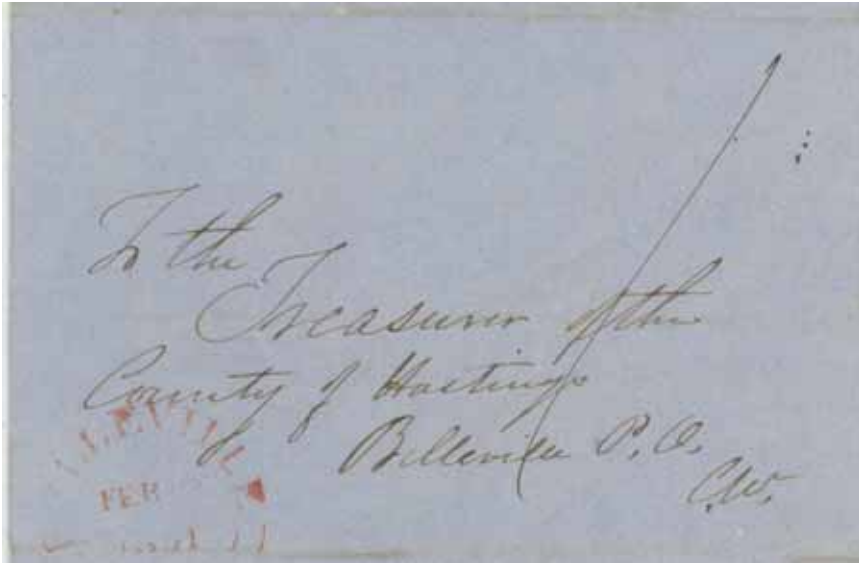 To the
Treasurer of the
County of Hastings
Belleville P. O.
C.W.
FEB